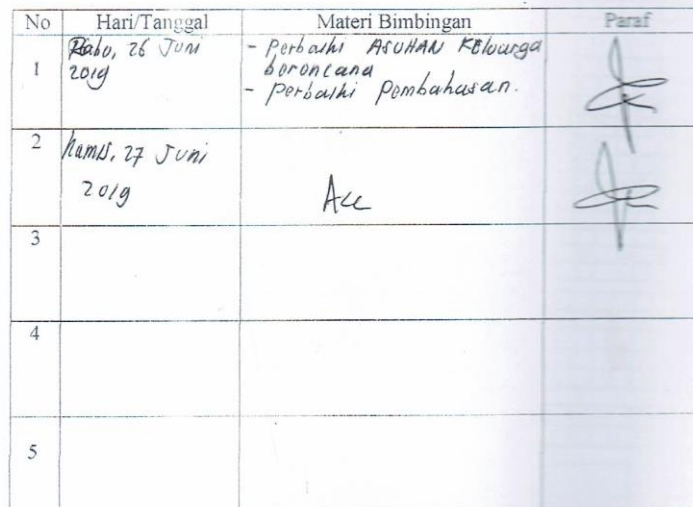 No Hari/Tanggal Materi Bimbingan Paraf
1 Rabu, 26 Juni 2019 - Perbaiki ASUHAN Keluarga
beroncana
- perbaiki pembahasan.
2 Kamis, 27 Juni
2019 Acc
3
4
5